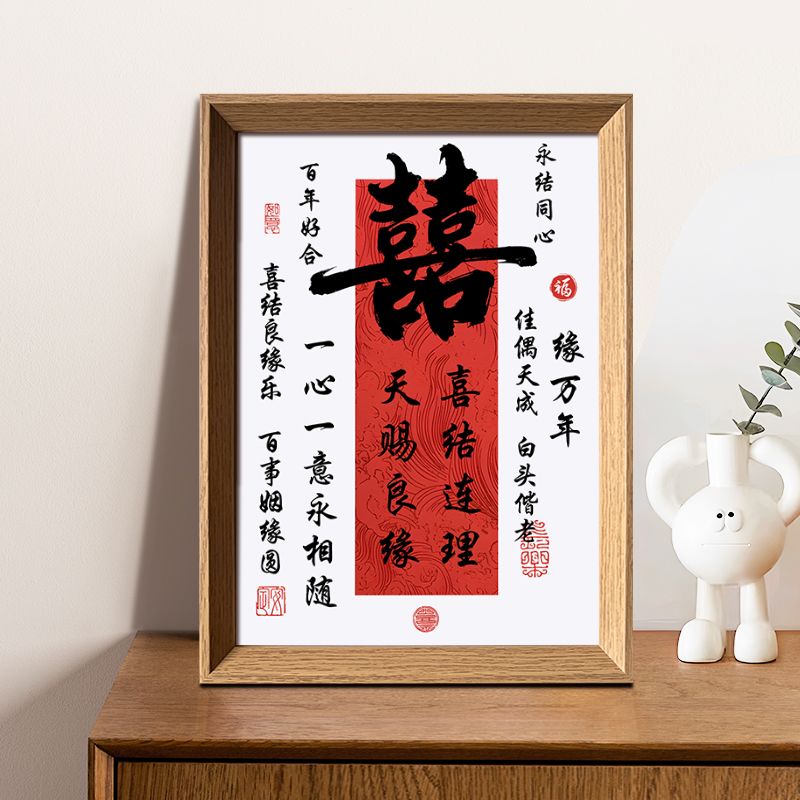 囍
永结同心
福
缘万年
佳偶天成 白头偕老
喜结连理
天赐良缘
百年好合
一心一意永相随
喜结良缘乐 百事姻缘圆